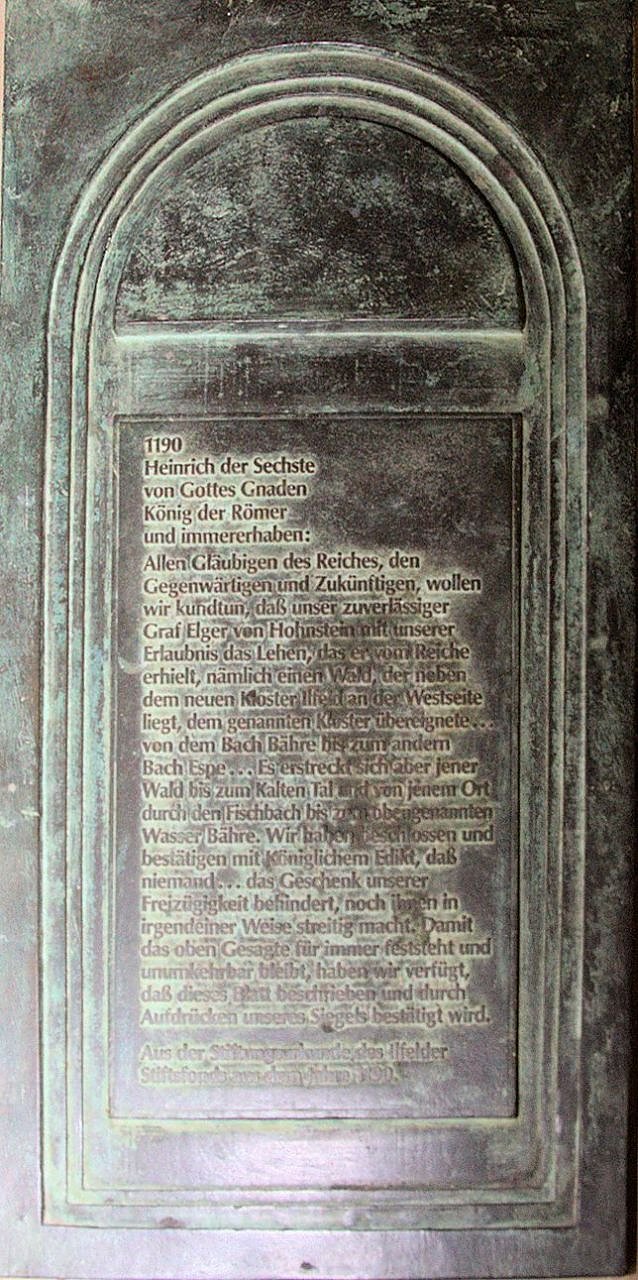 1190
Heinrich der Sechste
von Gottes Gnaden
König der Römer
und immererhaben:
Allen Gläubigen des Reiches, den
Gegenwärtigen und Zukünftigen, wollen
wir kundtun, daß unser zuverlässiger
Graf Elger von Hohnstein mit unserer
Erlaubnis das Lehen, das er vom Reiche
erhielt, nämlich einen Wald, der neben
dem neuen Kloster Ilfeld an der Westseite
liegt, dem genannten Kloster übereignete...
von dem Bach Bähre bis zum andern
Bach Espe... Es erstreckt sich aber jener
Wald bis zum Kalten Tal und von jenem Ort
durch den Fischbach bis zum obengenannten
Wasser Bähre. Wir haben beschlossen und
bestätigen mit Königlichem Edikt, daß
niemand... das Geschenk unserer
Freizügigkeit behindert, noch ihnen in
irgendeiner Weise streitig macht. Damit
das oben Gesagte für immer feststeht und
unumkehrbar bleibt, haben wir verfügt,
daß dieses Blatt beschrieben und durch
Aufdrücken unseres Siegels bestätigt wird.
Aus der Stiftungsurkunde des Ilfelder
Stiftsfonds aus dem Jahre 1190.